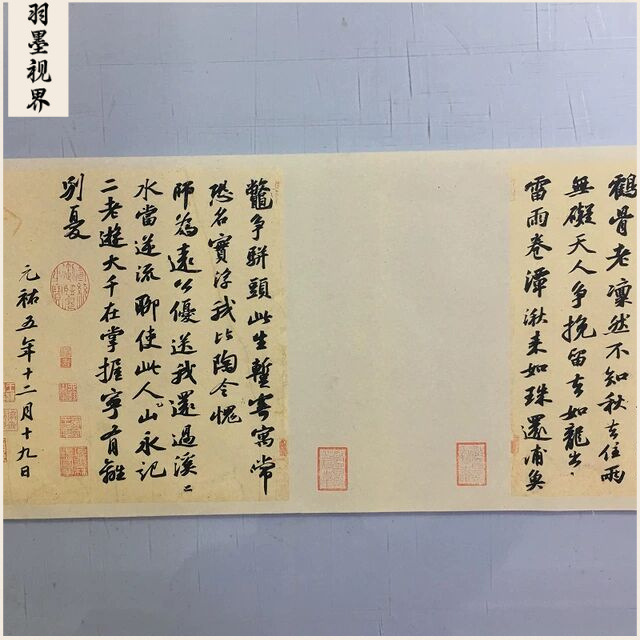 羽墨视界
鶴骨老凛然不知秋去住兩
無礙天人争挽留去如龍出
雷雨卷潭湫来如珠還浦魚
鼈争駢頭此生暫寄寓常
恐名實浮我比陶令愧
師為遠公優送我還過溪二
水當逆流聊使此人山永記
二老遊大千在掌握寧有離
别憂
元祐五年十二月十九日